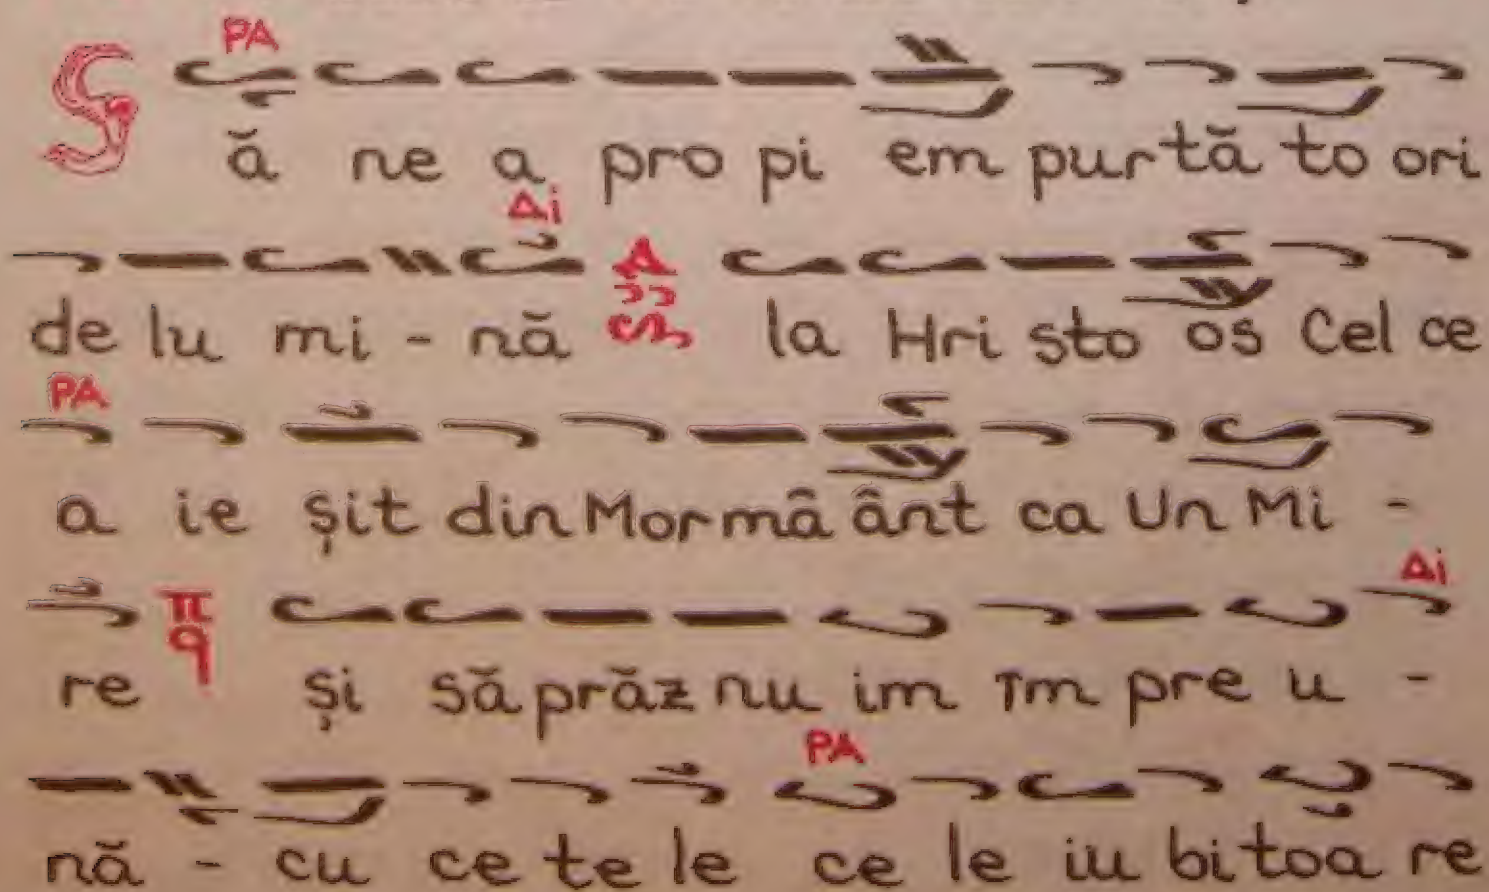 PA
Să ne a pro pi em purtă to ori
Δi
de lu mi - nă la Hri sto os Cel ce
PA
a ie șit din Mor mâ ânt ca Un Mi -
Δi
re π q și să prăz nu im îm pre u -
PA
nă - cu ce te le ce le iu bi toa re